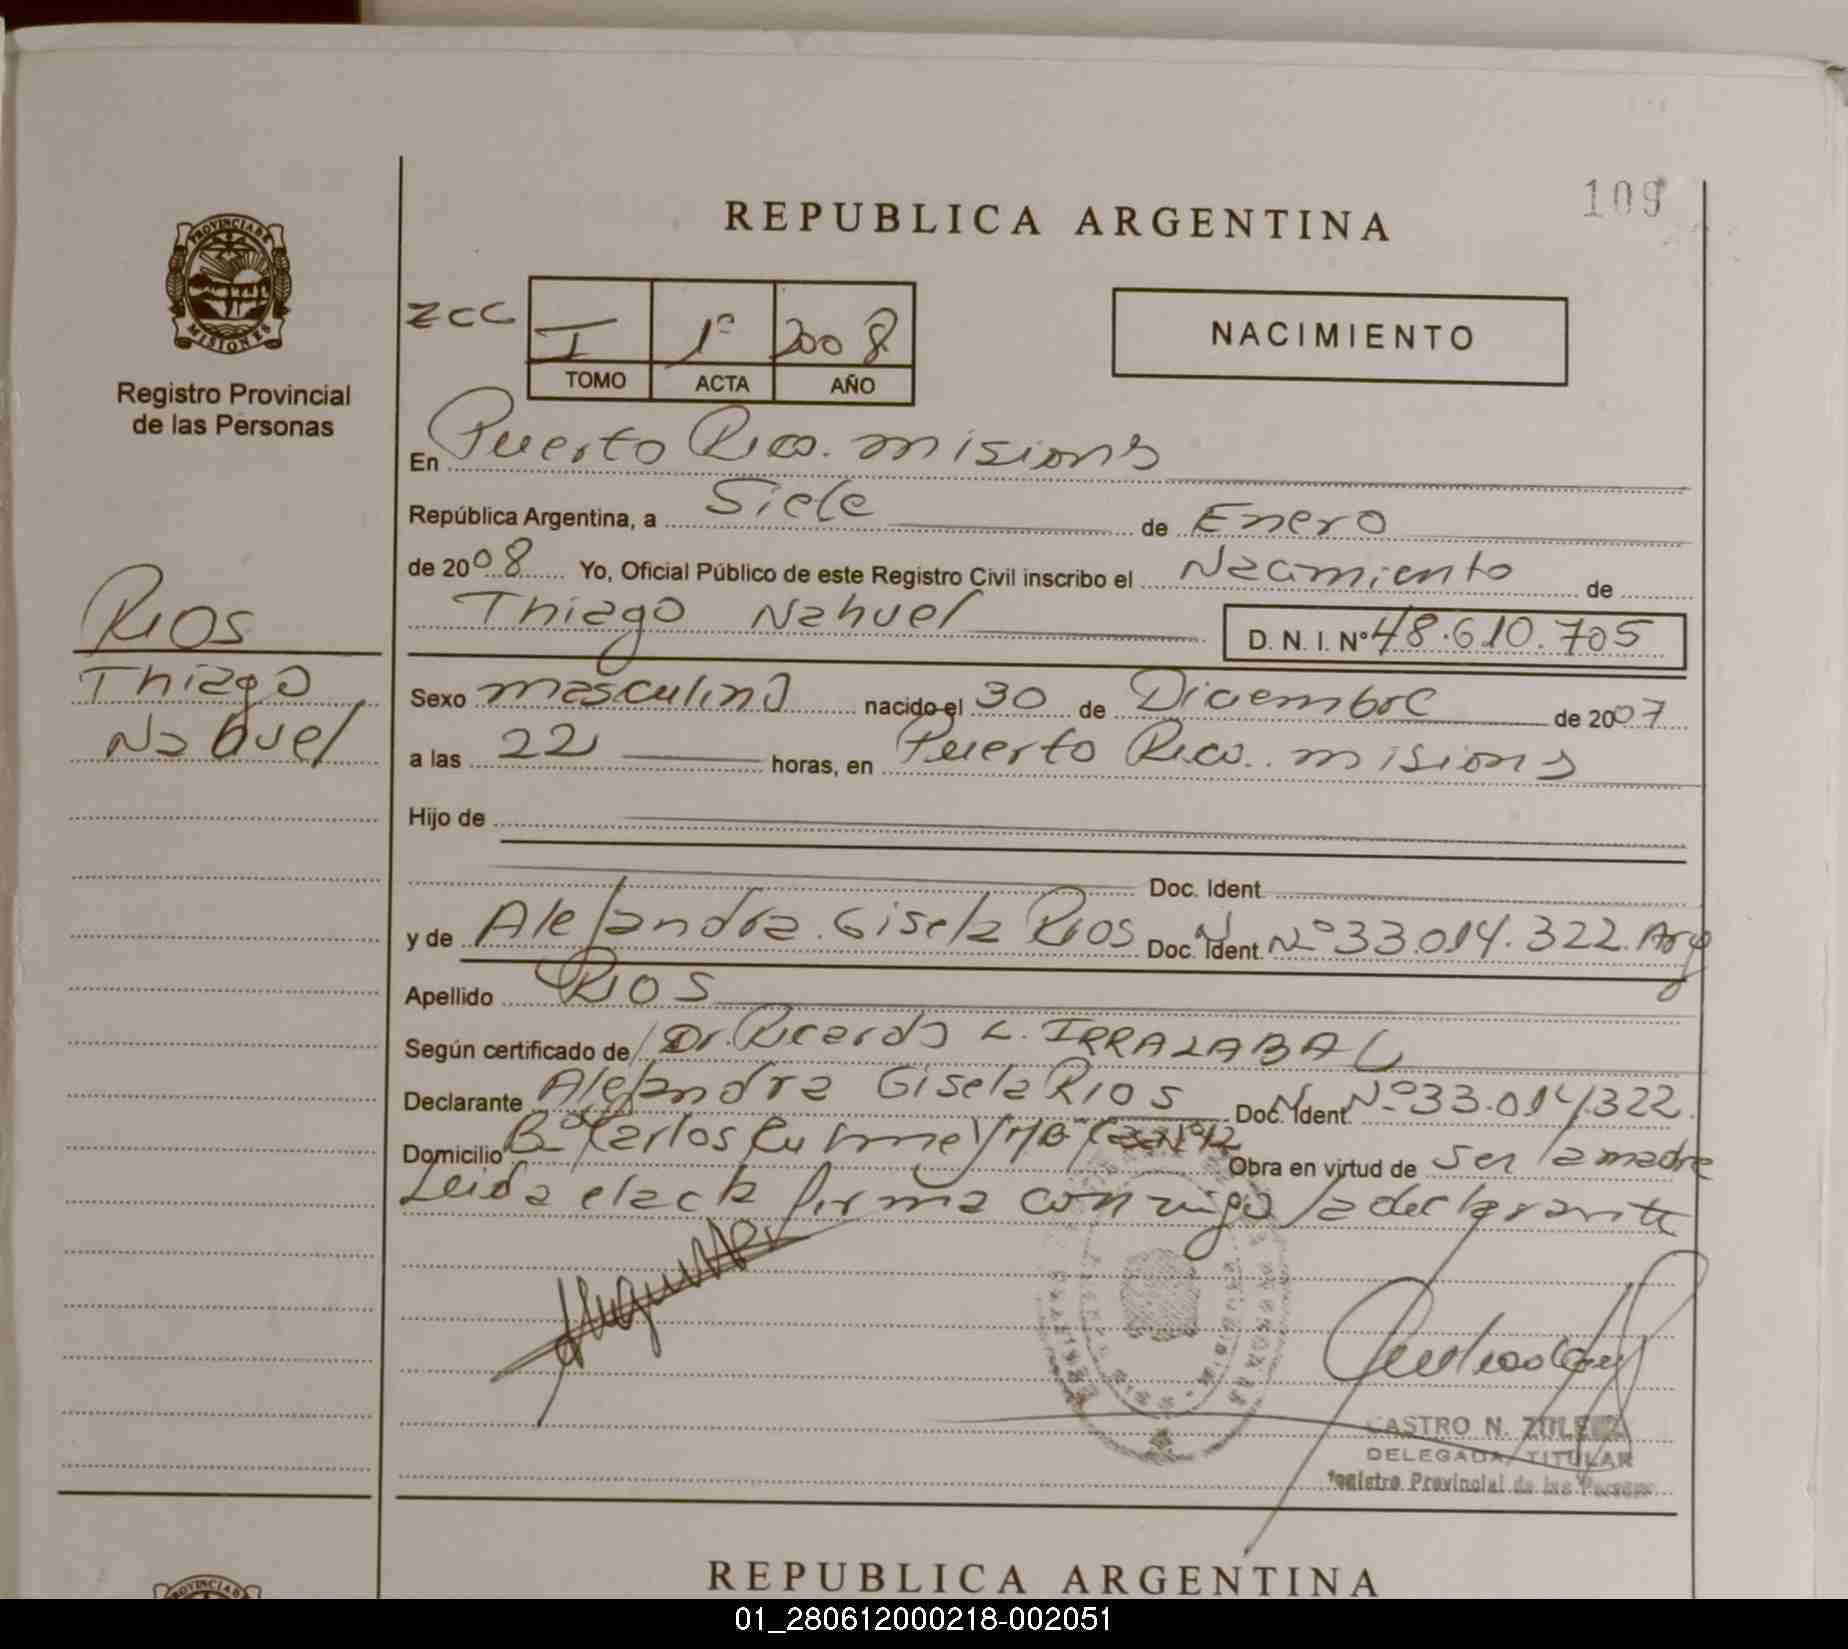 109
REPUBLICA ARGENTINA
PROVINCIA DE
MISIONES
Registro Provincial
de las Personas
zcc I 1º 2008
TOMO ACTA AÑO
NACIMIENTO
En Puerto Rico. misions
República Argentina, a Siete de Enero
de 2008 Yo, Oficial Público de este Registro Civil inscribo el Nacimiento de
Thiago Nahuel D. N. I. Nº 48.610.705
RIOS
Thiago
Nahuel
Sexo masculino nacido el 30 de Diciembre de 2007
a las 22 horas, en Puerto Rico. misions
Hijo de
Doc. Ident.
y de Alejandra Gisela RIOS Doc. Ident. Nº 33.014.322. Arg
Apellido RIOS
Según certificado de Dr. Ricardo L. IRRALABAL
Declarante Alejandra Gisela RIOS Doc. Ident. Nº 33.014.322.
Domicilio Bº Carlos Obra en virtud de ser la madre
Leida el acta firma conmigo la declarante
CASTRO N. ZULEMA
DELEGADA TITULAR
Registro Provincial de las Personas
REPUBLICA ARGENTINA
PROVINCIA DE
01_280612000218-002051